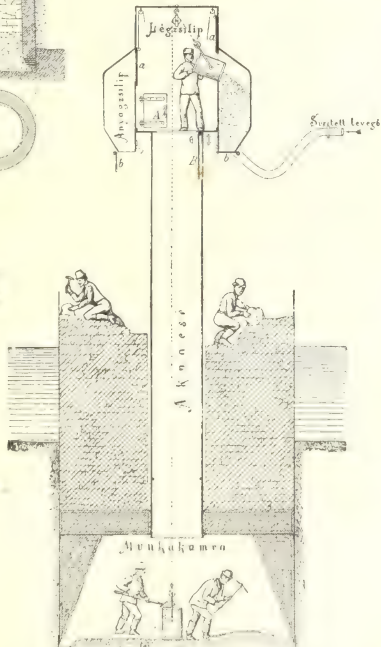 Légzsilip
a
a
Anyagzsilip
A
b
b
B
Sűrített levegő
Aknacső
Munkakamra